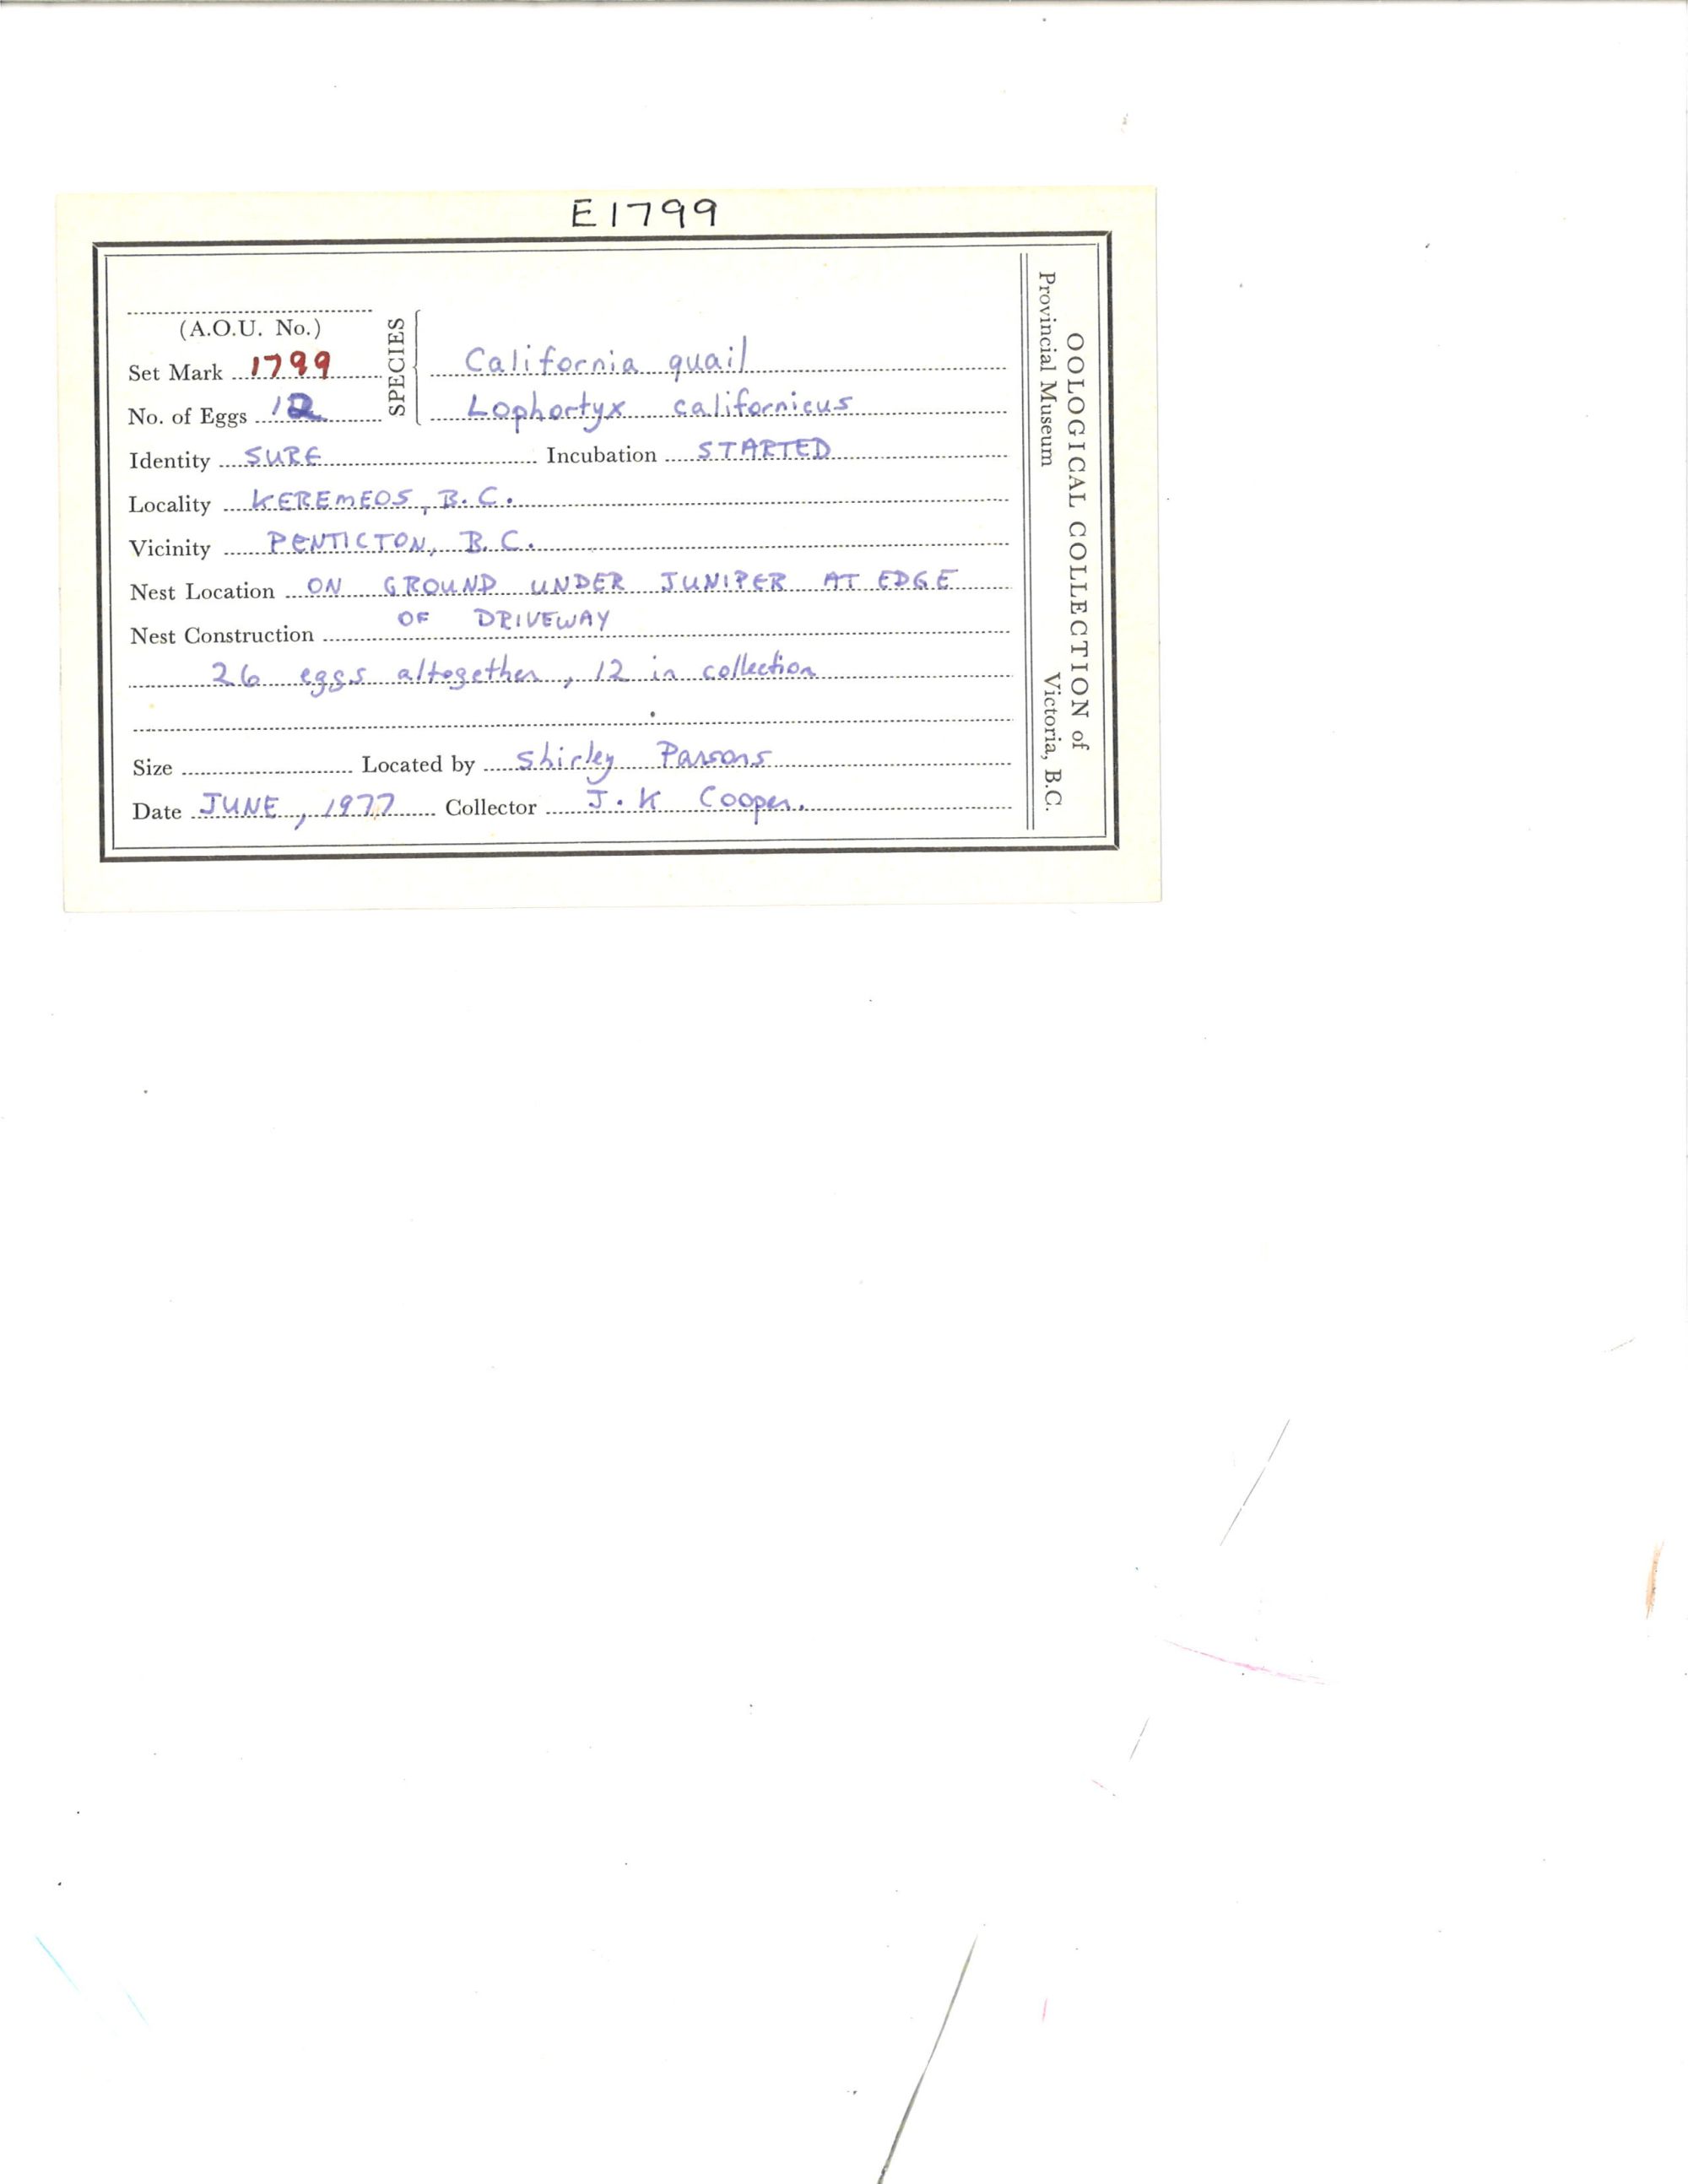 E1799
(A.O.U. No.)
SPECIES
Set Mark 1799 California quail
No. of Eggs 12 Lophortyx californicus
Identity SURE Incubation STARTED
Locality KEREMEOS, B.C.
Vicinity PENTICTON, B.C.
Nest Location ON GROUND UNDER JUNIPER AT EDGE
OF DRIVEWAY
Nest Construction
26 eggs altogether, 12 in collection
Size Located by Shirley Parsons
Date JUNE, 1977 Collector J.K Cooper.
OOLOGICAL COLLECTION of
Provincial Museum Victoria, B.C.